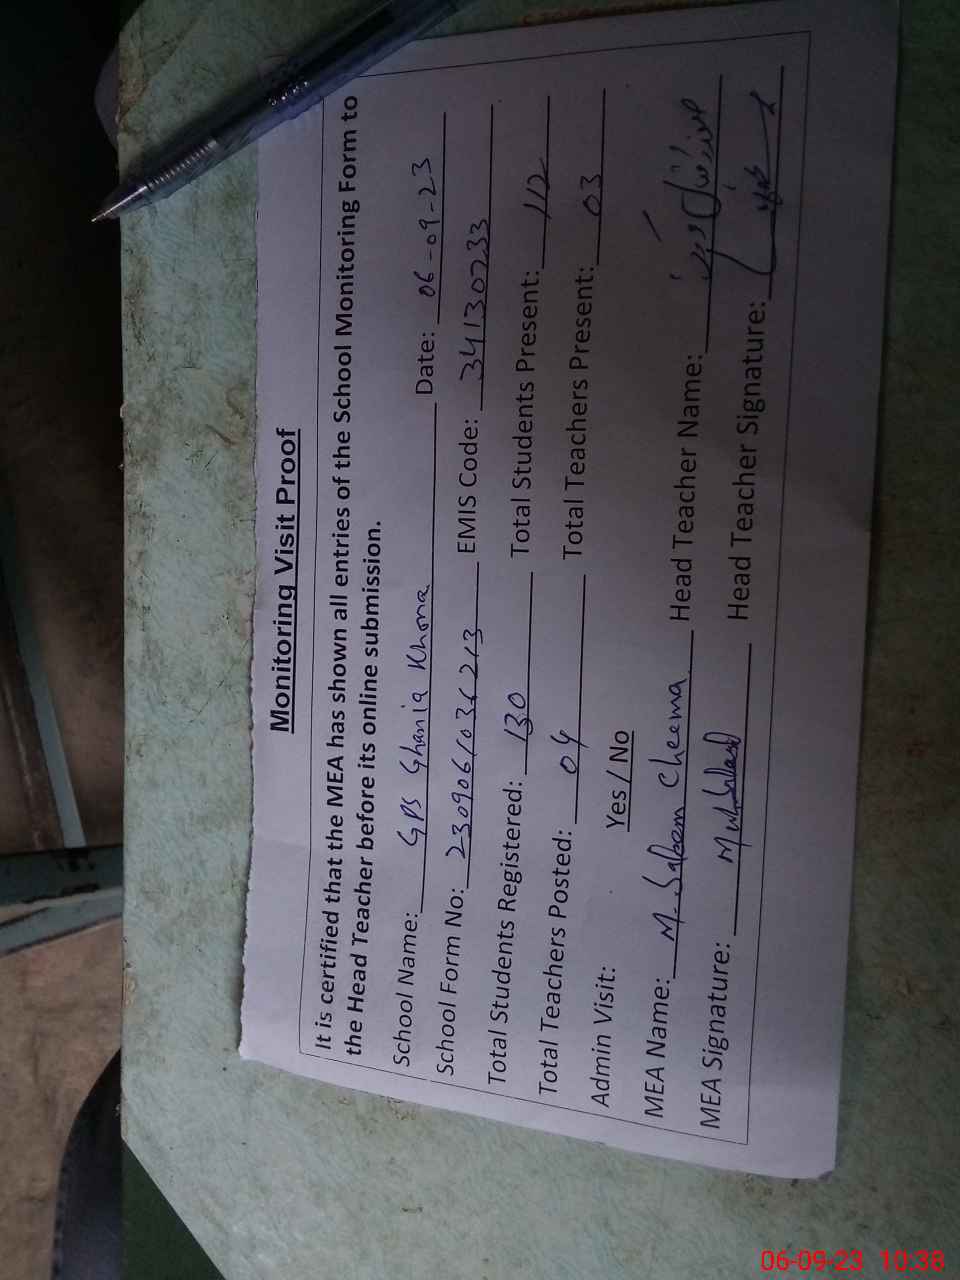 Monitoring Visit Proof
It is certified that the MEA has shown all entries of the School Monitoring Form to
the Head Teacher before its online submission.
School Name: GPS Ghania Khona Date: 06-09-23
School Form No: EMIS Code: 34130233
Total Students Registered: 130 Total Students Present: 112
Total Teachers Posted: 04 Total Teachers Present: 03
Admin Visit: Yes / No
MEA Name: M. Saleem Cheema Head Teacher Name:
MEA Signature: Head Teacher Signature:
06-09-23 10:38